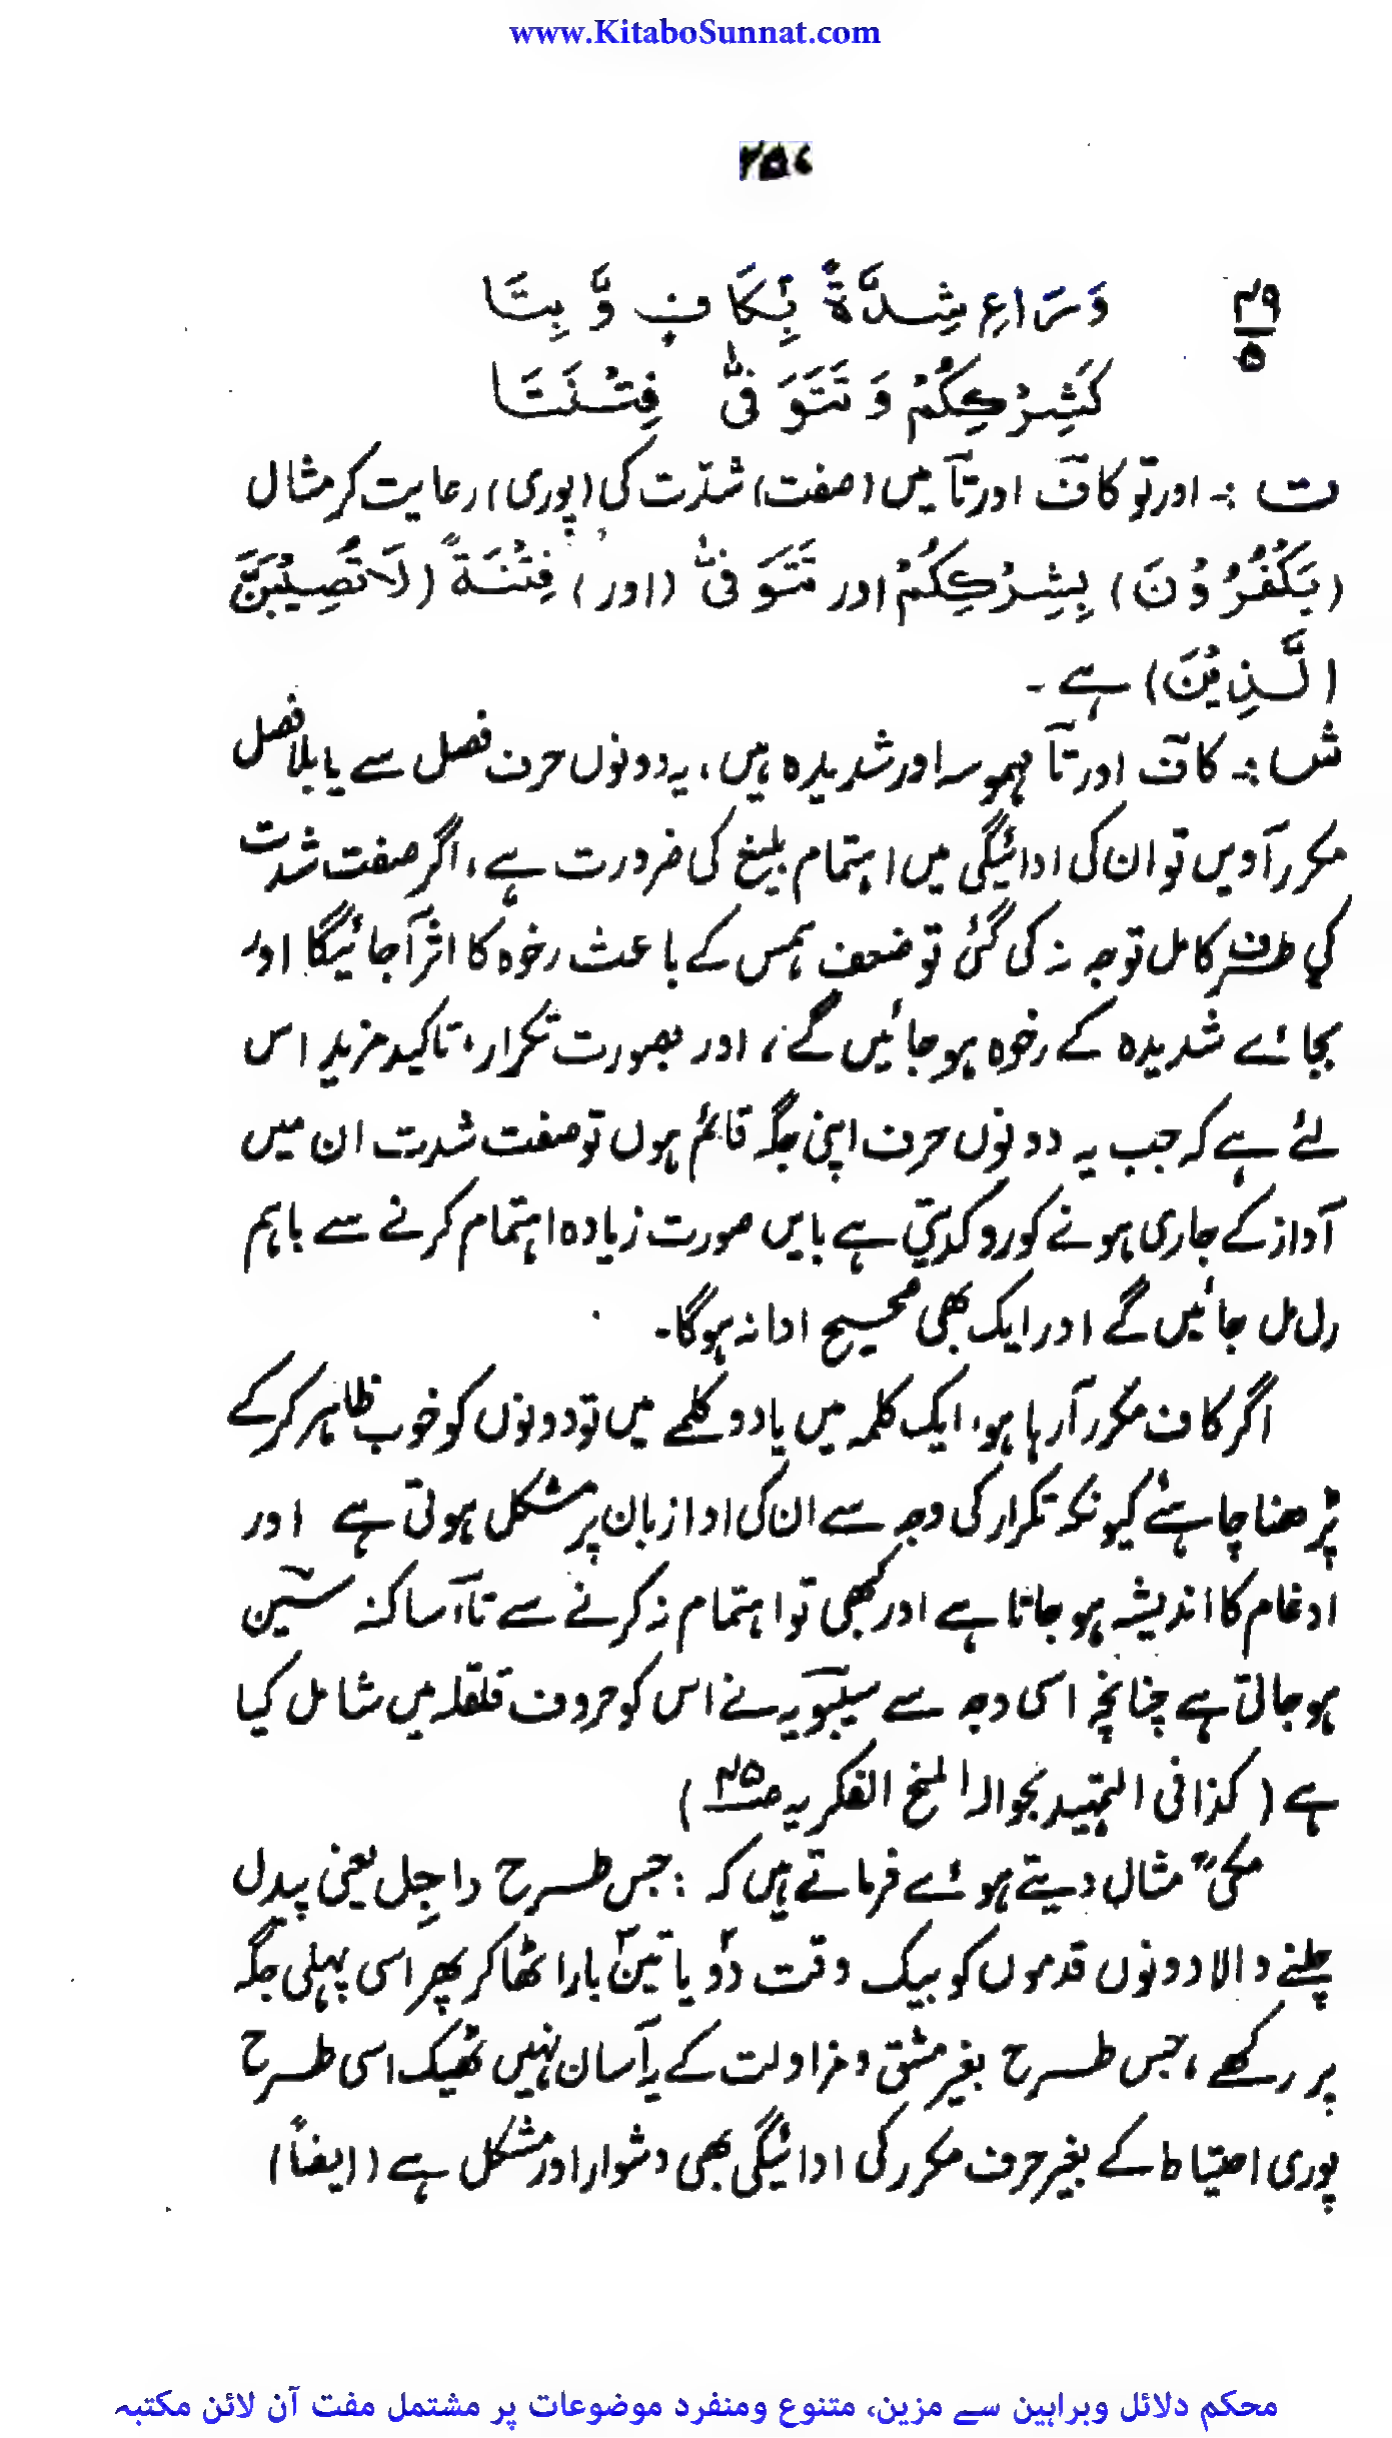 www.KitaboSunnat.com
۲۵۷
۴۹
۵
وَرَاعِ شِدَّةً بِکَافٍ وَّ بِتَا
کَشِرْکِکُمْ وَ تَتَوَفّٰی فِتْنَتَا
ت :۔ اور تو کاف اور تا میں (صفت) شدّت کی (پوری) رعایت کر مثال
(یَکْفُرُوْنَ) بِشِرْکِکُمْ اور تَتَوَفّٰی (اور) فِتْنَةً (لَا تُصِیْبَنَّ
الَّذِیْنَ) ہے ۔
ش :۔ کاف اور تا مہموسہ اور شدیدہ ہیں، یہ دونوں حرف فصل سے یا بلا فصل
مکرر آویں تو ان کی ادائیگی میں اہتمام بلیغ کی ضرورت ہے، اگر صفت شدت
کی طرف کامل توجہ نہ کی گئی تو ضعف ہمس کے باعث رخوہ کا اثر آجائیگا اور
بجائے شدیدہ کے رخوہ ہو جائیں گے، اور بصورت تکرار، تاکید مزید اس
لئے ہے کہ جب یہ دونوں حرف اپنی جگہ قائم ہوں تو صفت شدت ان میں
آواز کے جاری ہونے کو روکدیتی ہے بایں صورت زیادہ اہتمام کرنے سے باہم
رل مل جائیں گے اور ایک بھی صحیح ادا نہ ہوگا۔
اگر کاف مکرر آرہا ہو، ایک کلمہ میں یا دو کلمے میں تو دونوں کو خوب ظاہر کرکے
پڑھنا چاہئے کیونکہ تکرار کی وجہ سے ان کی ادا زبان پر مشکل ہوتی ہے اور
ادغام کا اندیشہ ہو جاتا ہے اور کبھی تو اہتمام نہ کرنے سے تاء ساکنہ سین
ہو جاتی ہے چنانچہ اسی وجہ سے سیبویہ نے اس کو حروف قلقلہ میں شامل کیا
ہے (کذا فی التمہید بحوالہ المنح الفکریہ صـ۴۵)
مکیؒ مثال دیتے ہوئے فرماتے ہیں کہ : جس طرح داجِل یعنی پیدل
چلنے والا دونوں قدموں کو بیک وقت دو یا تین بار اٹھا کر پھر اسی پہلی جگہ
پر رکھے، جس طرح بغیر مشق و مزاولت کے یہ آسان نہیں ٹھیک اسی طرح
پوری احتیاط کے بغیر حرف مکرر کی ادائیگی بھی دشوار اور مشکل ہے (ایضاً)
محکم دلائل وبراہین سے مزین، متنوع ومنفرد موضوعات پر مشتمل مفت آن لائن مکتبہ